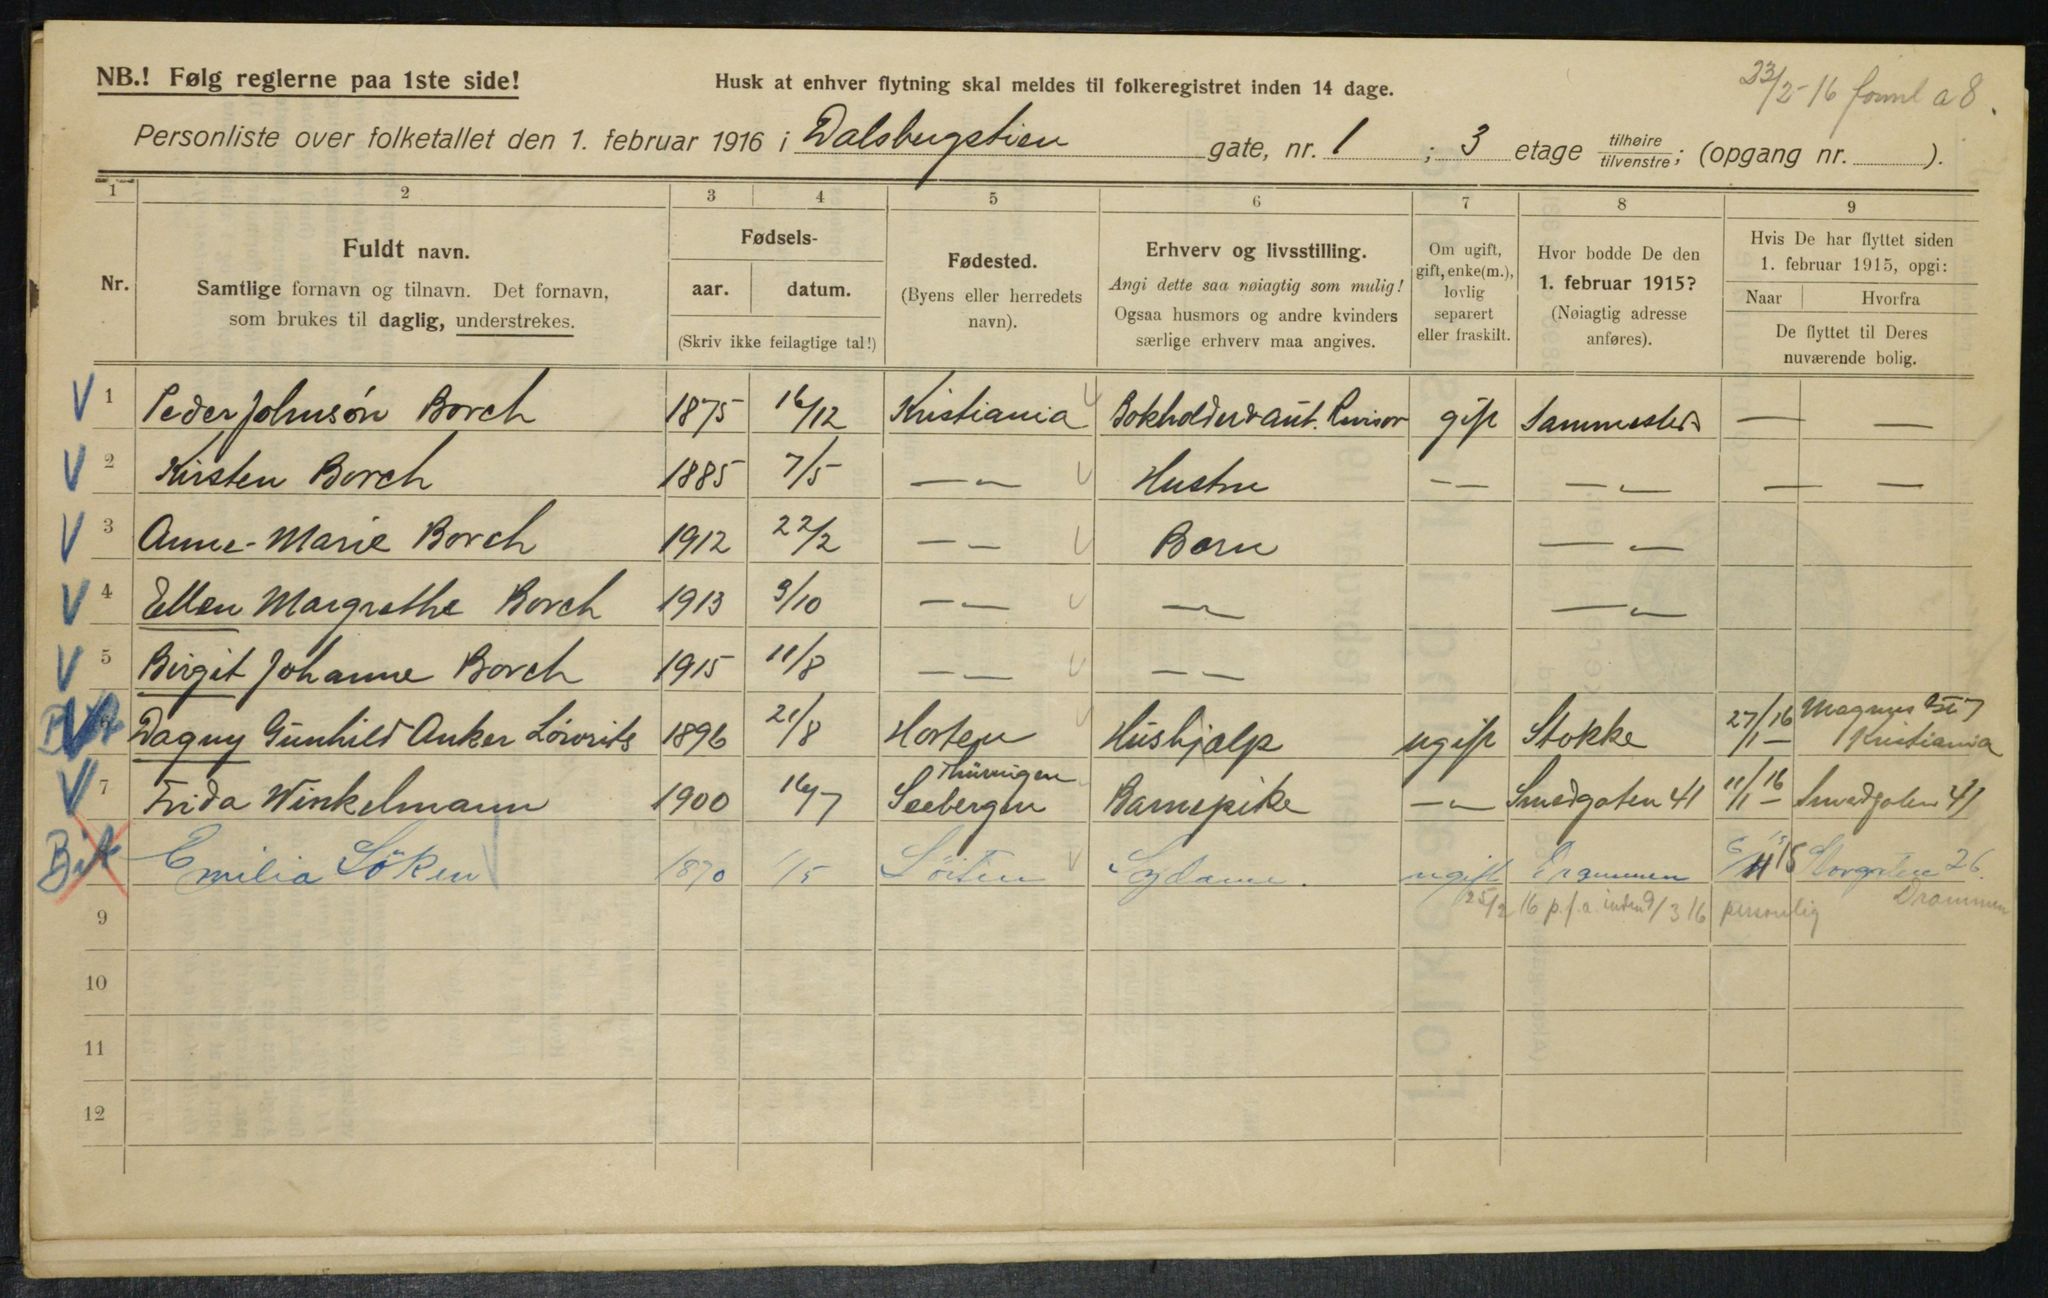 NB.! Følg reglerne paa 1ste side!
Husk at enhver flytning skal meldes til folkeregistret inden 14 dage.
23/2-16
Personliste over folketallet den 1. februar 1916 i Dalsbergstien gate, nr. 1 ; 3 etage tilhøire tilvenstre; (opgang nr. ).
1 2 3 4 5 6 7 8 9
Nr.
Fuldt navn.
Samtlige fornavn og tilnavn. Det fornavn,
som brukes til daglig, understrekes.
Fødsels-
aar. datum.
(Skriv ikke feilagtige tal!)
Fødested.
(Byens eller herredets
navn).
Erhverv og livsstilling.
Angi dette saa nøiagtig som mulig!
Ogsaa husmors og andre kvinders
særlige erhverv maa angives.
Om ugift,
gift, enke(m.),
lovlig
separert
eller fraskilt.
Hvor bodde De den
1. februar 1915?
(Nøiagtig adresse
anføres).
Hvis De har flyttet siden
1. februar 1915, opgi:
Naar Hvorfra
De flyttet til Deres
nuværende bolig.
V 1 Peder Johnsøn Borch 1875 16/12 Kristiania Bokholder & aut. Revisor gift Sammesteds — —
V 2 Kirsten Borch 1885 7/5 — „ — Hustru — — — „ — — —
V 3 Anne-Marie Borch 1912 22/2 — — Barn — „ —
V 4 Ellen Margrethe Borch 1913 9/10 — — — „ — — „ —
V 5 Birgit Johanne Borch 1915 11/8 — — — —
6 Dagny Gunhild Anker 1896 21/8 Horten Hushjælp ugift Stokke 27/1 — 16 Magnus
Kristiania
V 7 Frida Winkelmann 1900 16/7 Thüringen Seebergen Barnepike — „ — Smedgaten 41 11/1 — 16 Smedgaten 41
Emilia Söken 1870 1/5 Sydame. ugift Drammen 15 Storgaten 26.
Drammen
25/2 16 p.f.a. inden 9/3 16 personlig
9
10
11
12